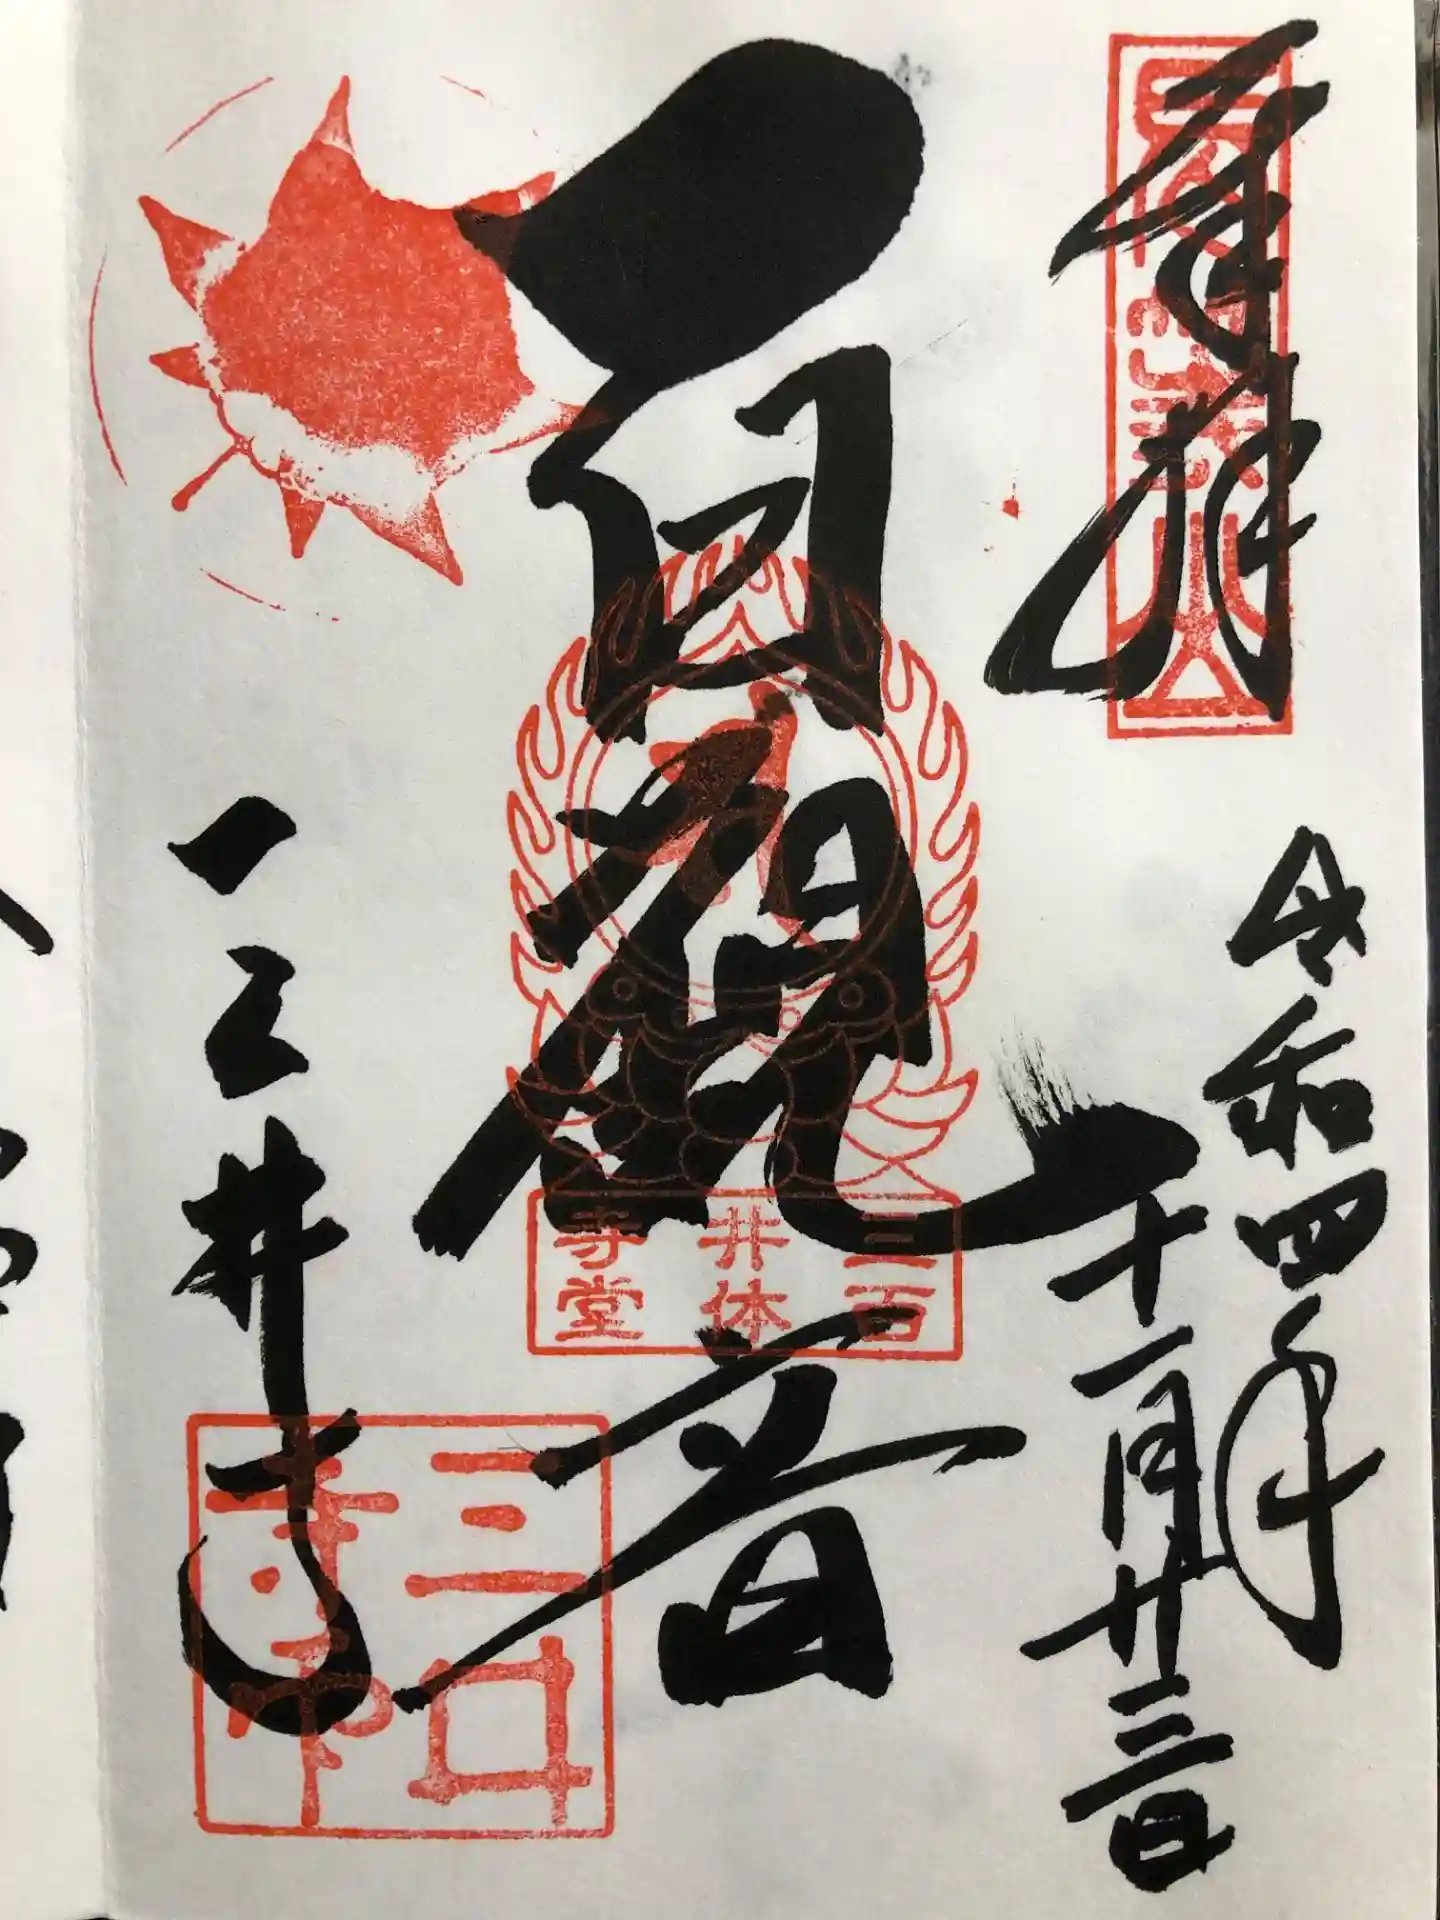 奉拝
令和四年
十一月廿三日
百観音
三井寺
三百
井体
寺堂
三井
寺印